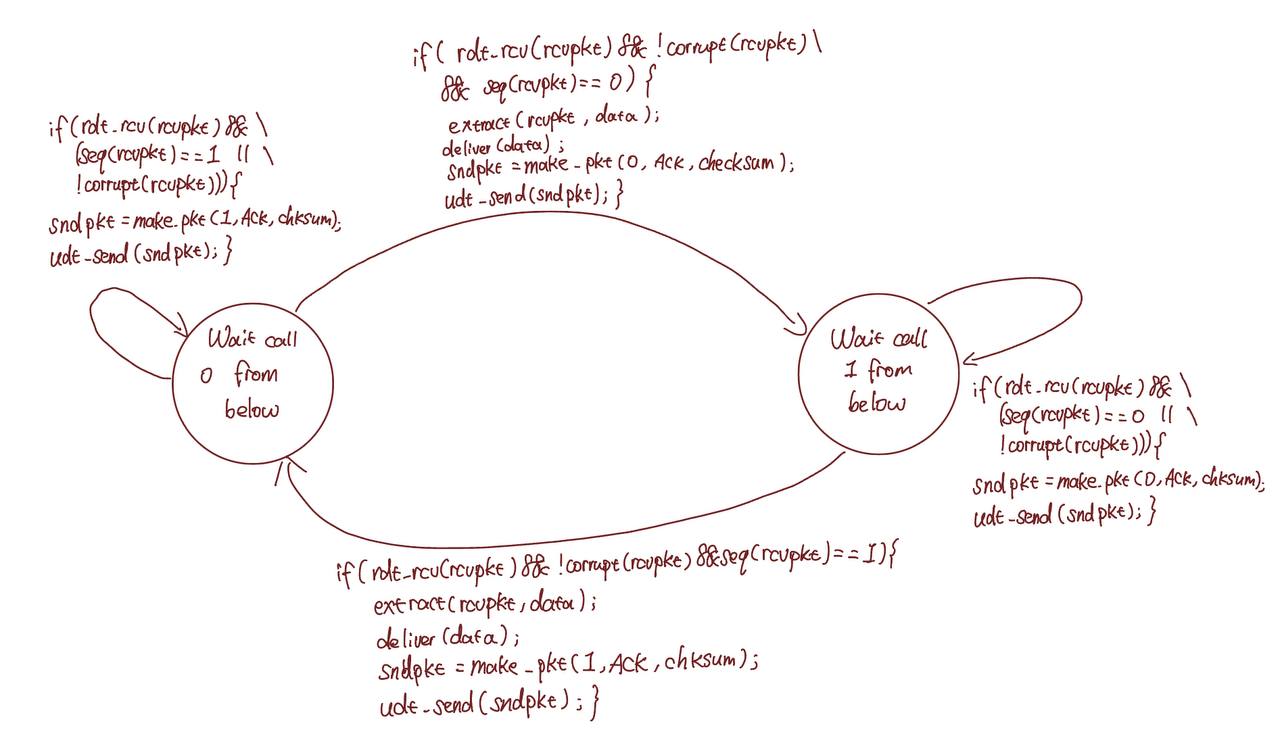 if( rdt_rcv(rcvpkt) && !corrupt(rcvpkt) \
&& seq(rcvpkt)== 0) {
extract(rcvpkt, data);
deliver(data);
sndpkt = make_pkt(0, Ack, checksum);
udt_send(sndpkt); }
if(rdt_rcv(rcvpkt) && \
(seq(rcvpkt)==1 || \
!corrupt(rcvpkt))){
sndpkt = make_pkt(1, Ack, chksum);
udt_send(sndpkt); }
Wait call
0 from
below
Wait call
1 from
below
if(rdt_rcv(rcvpkt) && \
(seq(rcvpkt)==0 || \
!corrupt(rcvpkt))){
sndpkt = make_pkt(0, Ack, chksum);
udt_send(sndpkt); }
if(rdt_rcv(rcvpkt) && !corrupt(rcvpkt) && seq(rcvpkt)==1){
extract(rcvpkt, data);
deliver(data);
sndpkt = make_pkt(1, ACK, chksum);
udt_send(sndpkt); }